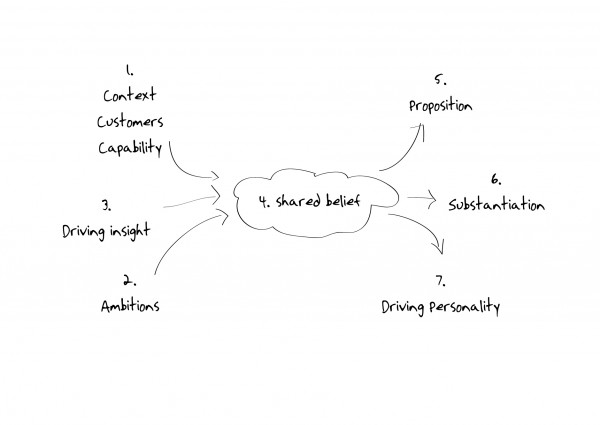 1.
Context
Customers
Capability
3.
Driving insight
2.
Ambitions
4. shared belief
5.
Proposition
6.
Substantiation
7.
Driving Personality